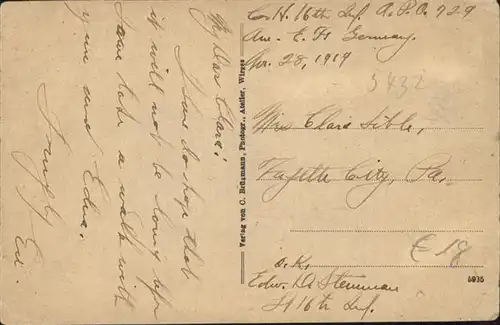 My Dear Clara:
I sure do hope that
it will not be long before
I can take a walk with
you and Edna.
Simply
Ed.
Verlag von C. Brügmann, Photogr., Atelier, Wirges
Co. H. 16th Inf. A.P.O. 729
Am. E. F. Germany.
Apr. 28, 1919
5432
Miss Clara Sible,
Fayette City, Pa.
€ 18
O.K.
Edw. D. Stenman
Lt 16th Inf.
5935